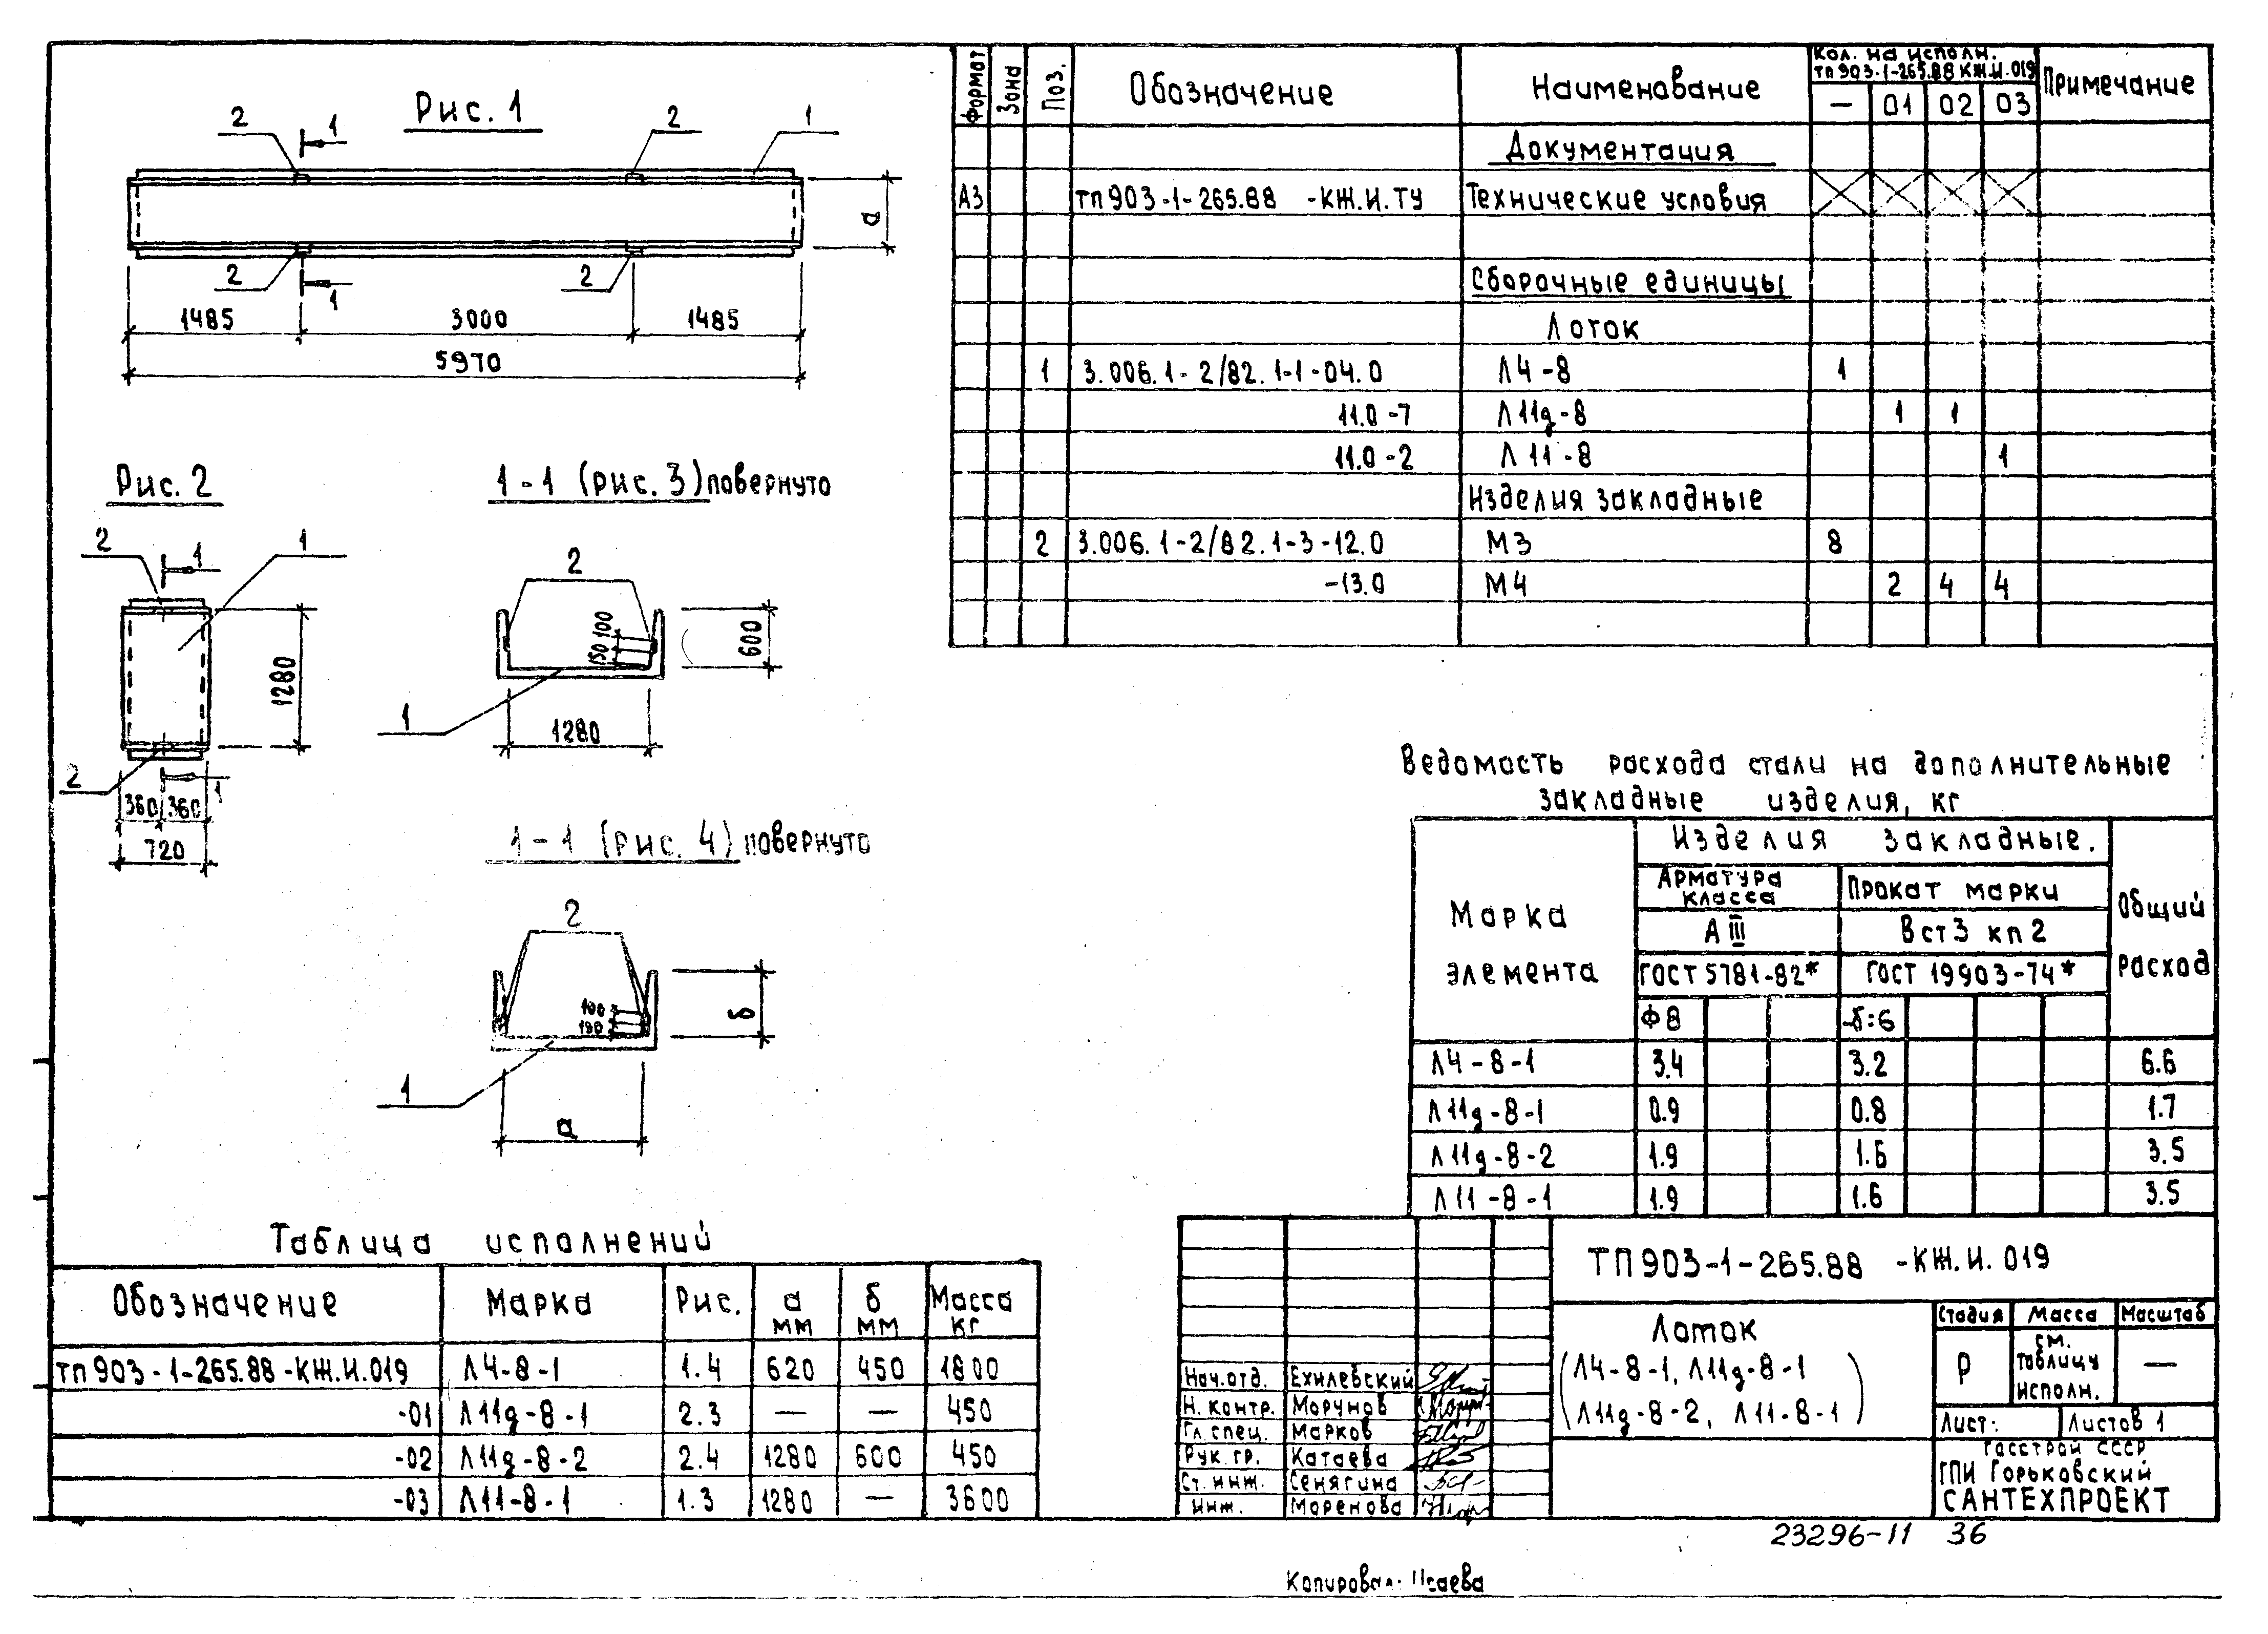 Рис. 1
2
1
2
1
а
2
1
2
1485
3000
1485
5970
Рис. 2
2
1
1
1280
2
1
360
360
720
1-1 (рис. 3) повернуто
2
150 100
600
1
1280
1-1 (рис. 4) повернуто
2
100
б
1
а
Формат
Зона
Поз.
Обозначение
Наименование
Кол. на исполн.
тп903-1-265.88 КЖ.И.019
— 01 02 03
Примечание
Документация
А3 тп903-1-265.88 -КЖ.И.ТУ Технические условия
Сборочные единицы
Лоток
1 3.006.1-2/82.1-1-04.0 Л4-8 1
11.0-7 Л11д-8 1 1
11.0-2 Л11-8 1
Изделия закладные
2 3.006.1-2/82.1-3-12.0 М3 8
-13.0 М4 2 4 4
Ведомость расхода стали на дополнительные
закладные изделия, кг
Марка
элемента
Изделия закладные.
Арматура
класса
Прокат марки
Общий
расход
АIII
Вст3 кп2
ГОСТ 5781-82*
ГОСТ 19903-74*
Ф8
-δ:6
Л4-8-1 3.4 3.2 6.6
Л11д-8-1 0.9 0.8 1.7
Л11д-8-2 1.9 1.6 3.5
Л11-8-1 1.9 1.6 3.5
Таблица исполнений
Обозначение Марка Рис. а мм б мм Масса кг
тп903-1-265.88-КЖ.И.019 Л4-8-1 1.4 620 450 1800
-01 Л11д-8-1 2.3 — — 450
-02 Л11д-8-2 2.4 1280 600 450
-03 Л11-8-1 1.3 1280 — 3600
ТП903-1-265.88 -КЖ.И.019
Лоток
(Л4-8-1, Л11д-8-1
Л11д-8-2, Л11-8-1)
Стадия Масса Масштаб
Р
см.
таблицу
исполн.
—
Лист:
Листов 1
Госстрой СССР
ГПИ Горьковский
САНТЕХПРОЕКТ
Нач.отд. Ехилевский
Н. контр. Морунов
Гл. спец. Марков
Рук. гр. Катаева
Ст. инж. Сенягина
Инж. Моренова
23296-11 36
Копировал: